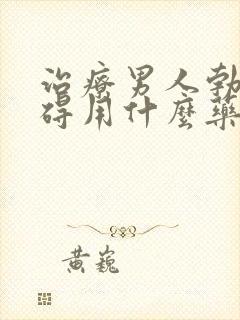 治療男人勃
碍用什麼藥
黃巍